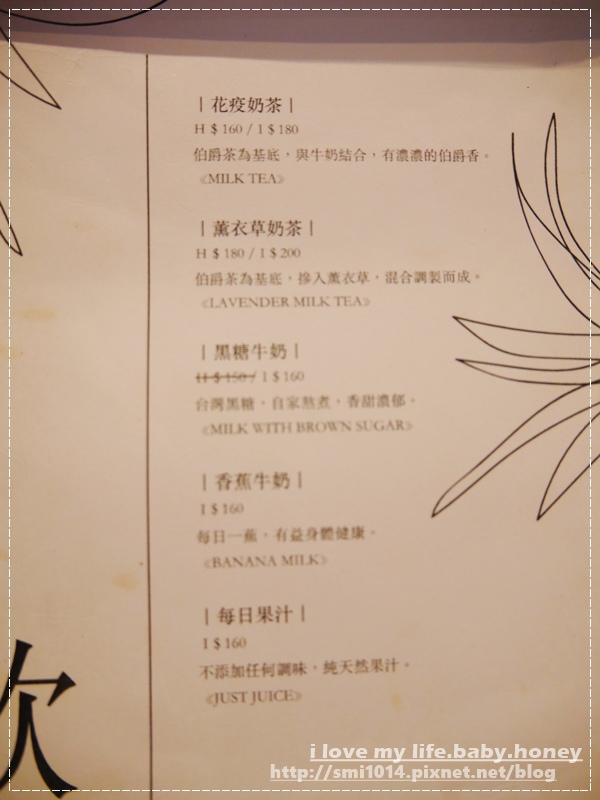 ｜花疫奶茶｜
H $160 / I $180
伯爵茶為基底，與牛奶結合，有濃濃的伯爵香。
《MILK TEA》
｜薰衣草奶茶｜
H $180 / I $200
伯爵茶為基底，摻入薰衣草，混合調製而成。
《LAVENDER MILK TEA》
｜黑糖牛奶｜
H $150 / I $160
台灣黑糖，自家熬煮，香甜濃郁。
《MILK WITH BROWN SUGAR》
｜香蕉牛奶｜
I $160
每日一蕉，有益身體健康。
《BANANA MILK》
｜每日果汁｜
I $160
不添加任何調味，純天然果汁。
《JUST JUICE》
i love my life.baby.honey
http://smi1014.pixnet.net/blog